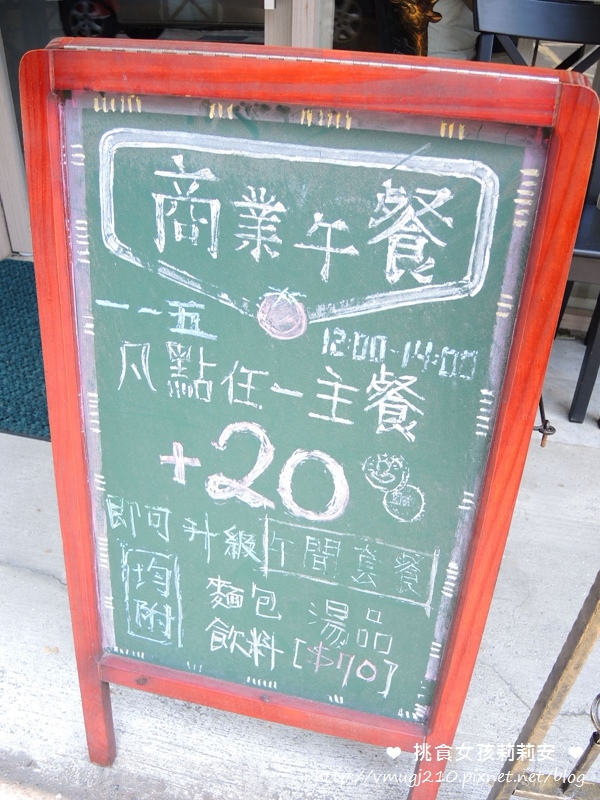 商業午餐
一~五 12:00-14:00
凡點任一主餐
+20
即可升級午間套餐
均附 麵包 湯品
飲料[$70]
♥ 挑食女孩莉莉安 ♥
http://vmugj210.pixnet.net/blog